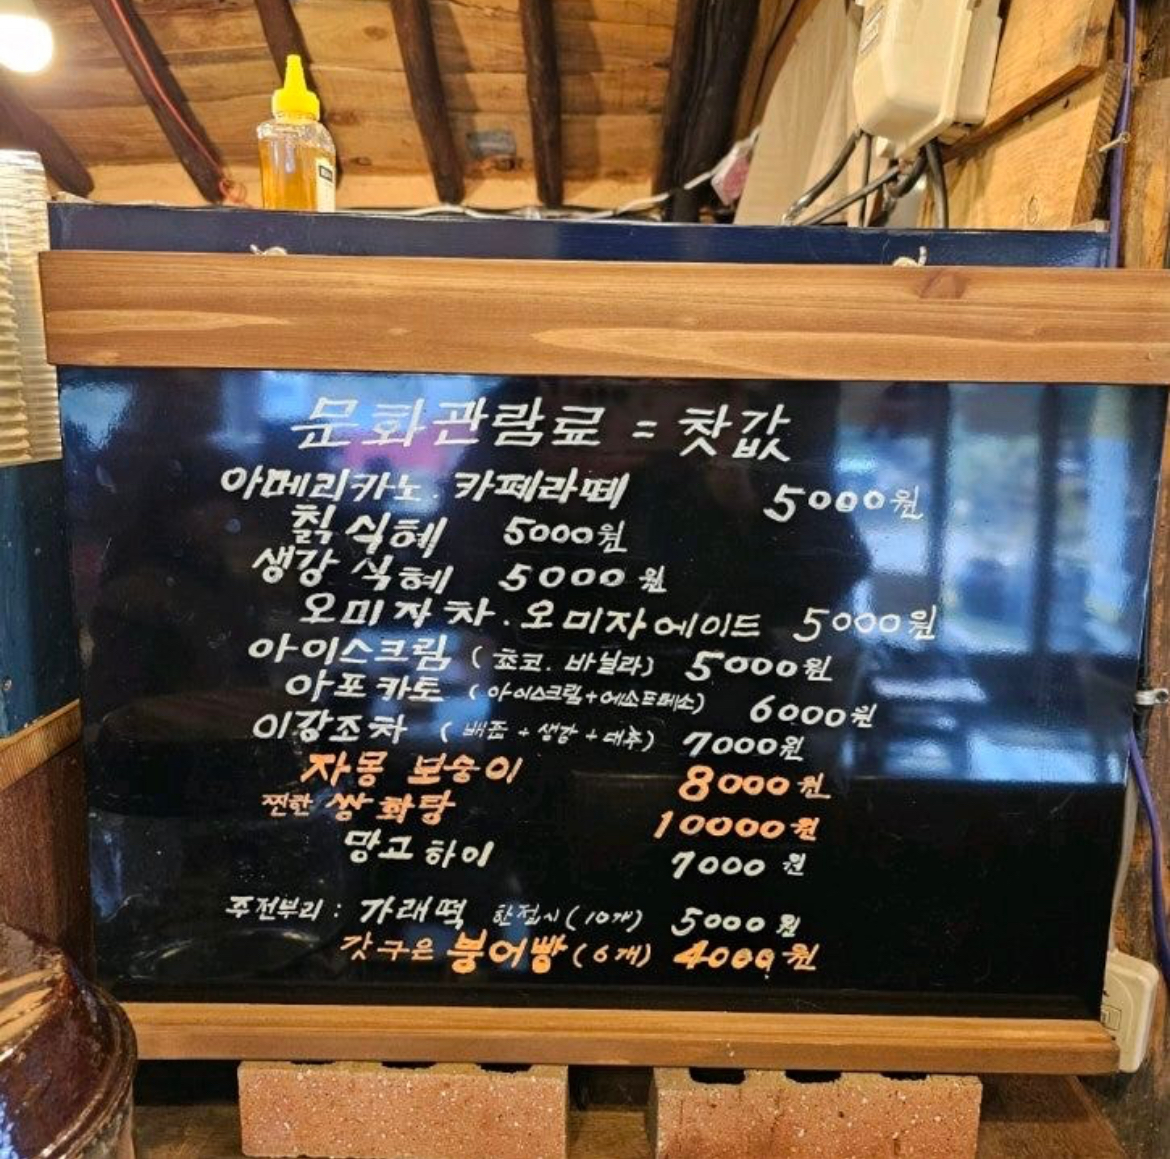 문화관람료 = 찻값
아메리카노. 카페라떼 5000원
칡 식혜 5000원
생강 식혜 5000원
오미자차. 오미자에이드 5000원
아이스크림 (쵸코. 바닐라) 5000원
아포카토 (아이스크림+에소프레소) 6000원
이강조차 (배즙 + 생강 + 대추) 7000원
자몽 보숭이 8000원
찐한 쌍화탕 10000원
망고하이 7000원
주전부리 : 가래떡 한접시 (10개) 5000원
갓구은 붕어빵 (6개) 4000원